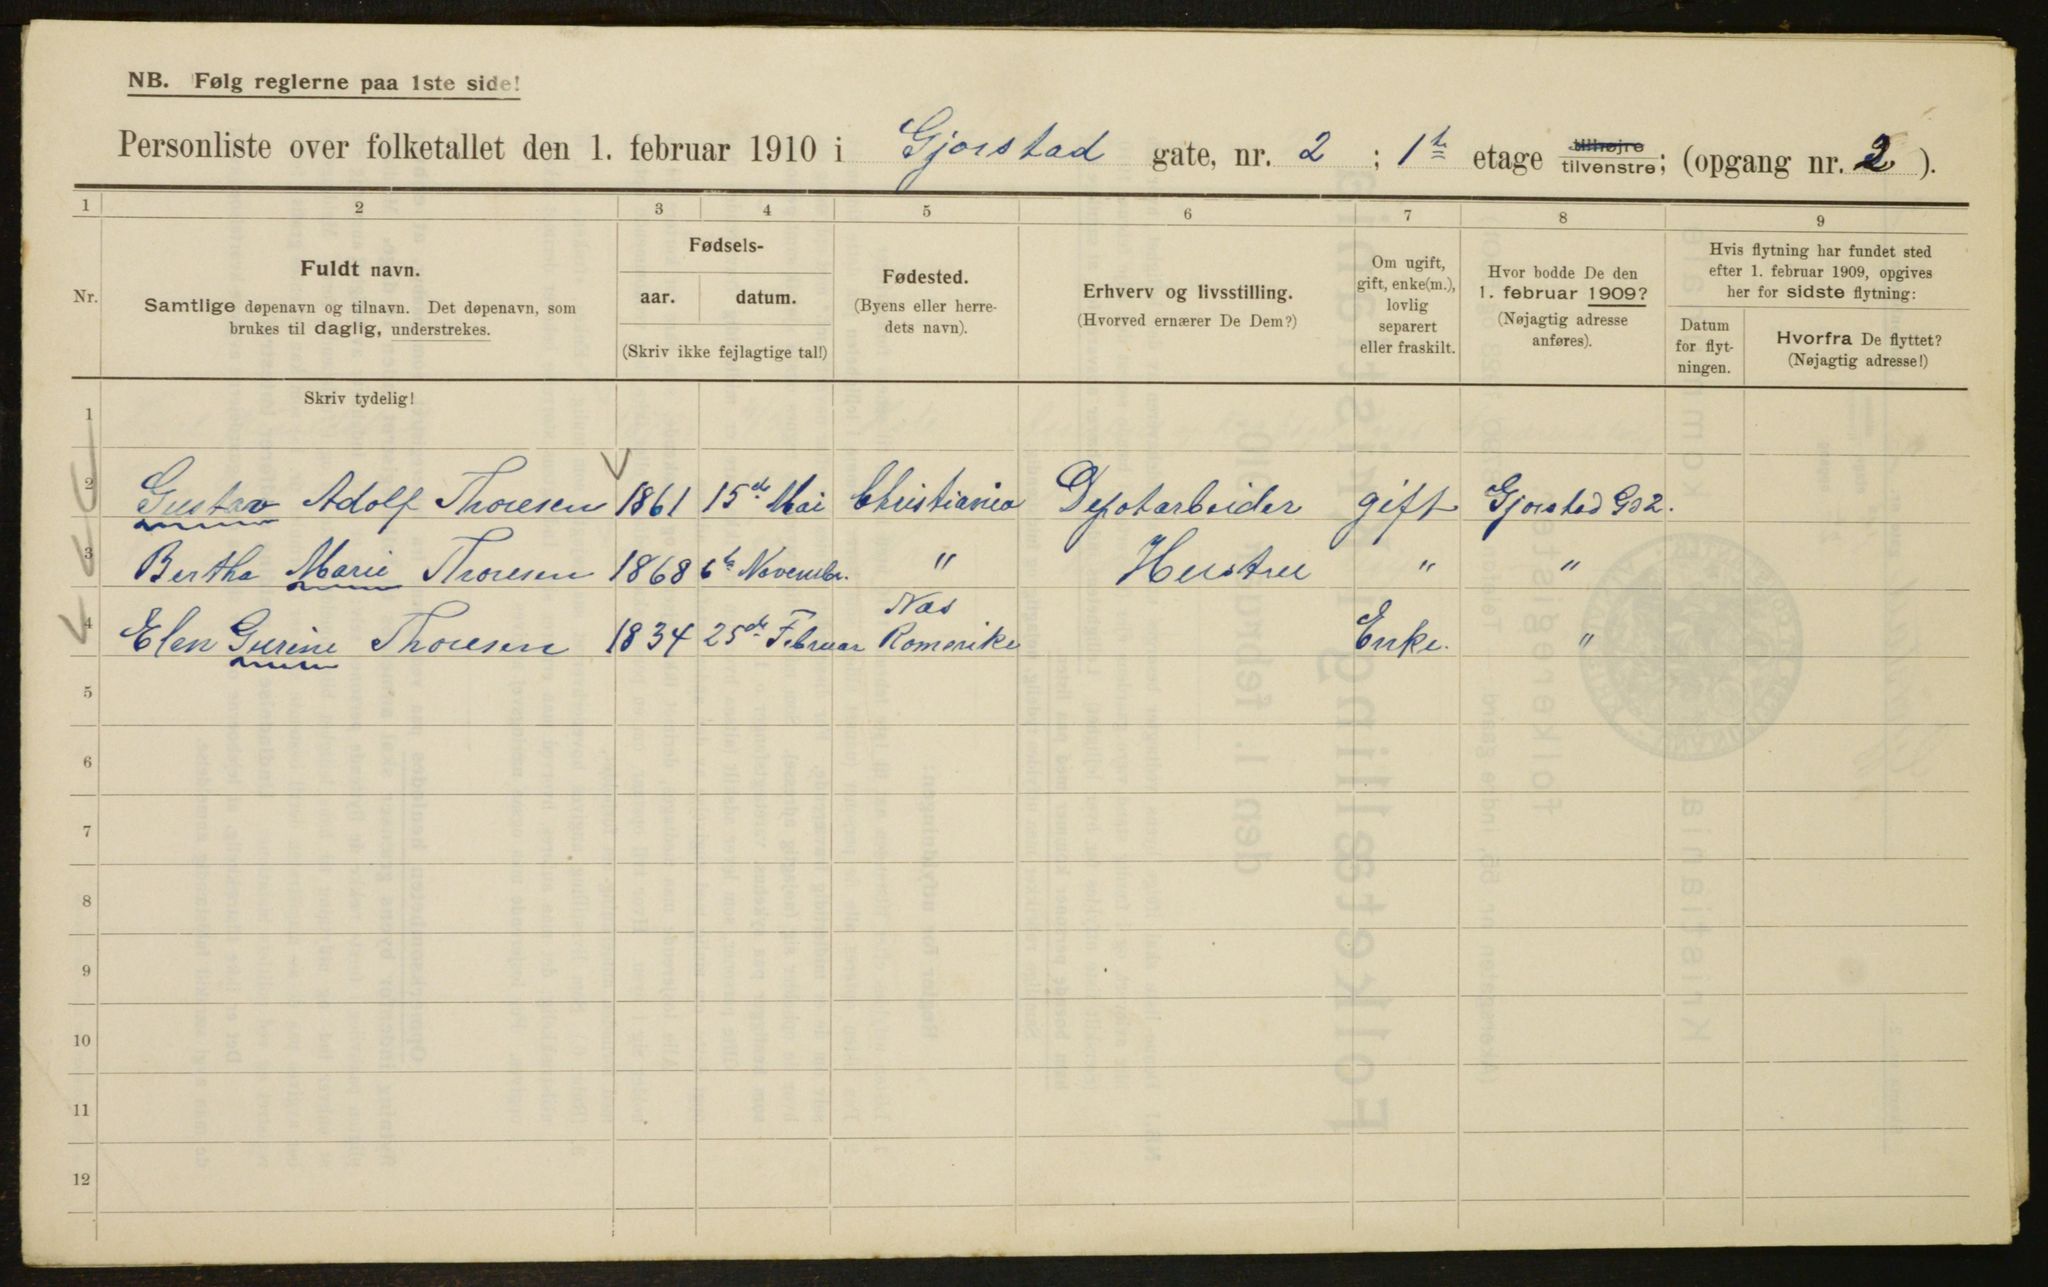 NB. Følg reglerne paa 1ste side!
Personliste over folketallet den 1. februar 1910 i Gjorstad gate, nr. 2 ; 1ste etage tilhøjre tilvenstre; (opgang nr. 2 ).
1 2 3 4 5 6 7 8 9
Nr.
Fuldt navn.
Samtlige døpenavn og tilnavn. Det døpenavn, som
brukes til daglig, understrekes.
Fødsels-
aar. datum.
(Skriv ikke fejlagtige tal!)
Fødested.
(Byens eller herre-
dets navn).
Erhverv og livsstilling.
(Hvorved ernærer De Dem?)
Om ugift,
gift, enke(m.),
lovlig
separert
eller fraskilt.
Hvor bodde De den
1. februar 1909?
(Nøjagtig adresse
anføres).
Hvis flytning har fundet sted
efter 1. februar 1909, opgives
her for sidste flytning:
Datum
for flyt-
ningen.
Hvorfra De flyttet?
(Nøjagtig adresse!)
Skriv tydelig!
1
2 Gustav Adolf Thoresen 1861 15de Mai Christiania Depotarbeider gift Gjorstad Gd 2.
3 Bertha Marie Thoresen 1868 6te Novembr. " Hustru " "
4 Elen Gurine Thoresen 1834 25de Februar Nas Romerike Enke. "
5
6
7
8
9
10
11
12